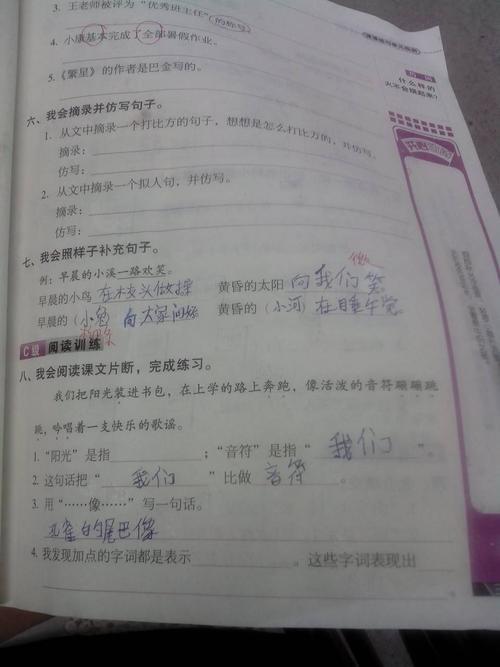 3. 王老师被评为“优秀班主任”的称号
4. 小康基本完成了全部暑假作业。
5.《繁星》的作者是巴金写的。
六、我会摘录并仿写句子。
1. 从文中摘录一个打比方的句子，想想是怎么打比方的，并仿写。
摘录：
仿写：
2. 从文中摘录一个拟人句，并仿写。
摘录：
仿写：
七、我会照样子补充句子。
例：早晨的小溪一路欢笑。
早晨的小鸟 在枝头做操 黄昏的太阳 向我们笑
早晨的（小兔 向大家问好 黄昏的（小河）在睡午觉
C级 阅读训练
八、我会阅读课文片断，完成练习。
我们把阳光装进书包，在上学的路上奔跑，像活泼的音符蹦蹦跳
跳，吟唱着一支快乐的歌谣。
1. “阳光”是指 ；“音符”是指“ 我们 ”。
2. 这句话把“ 我们 ”比做 音符 。
3. 用“……像……”写一句话。
孔雀的尾巴像
4. 我发现加点的字词都是表示 。这些字词表现出
什么样的
火不会烧起来？